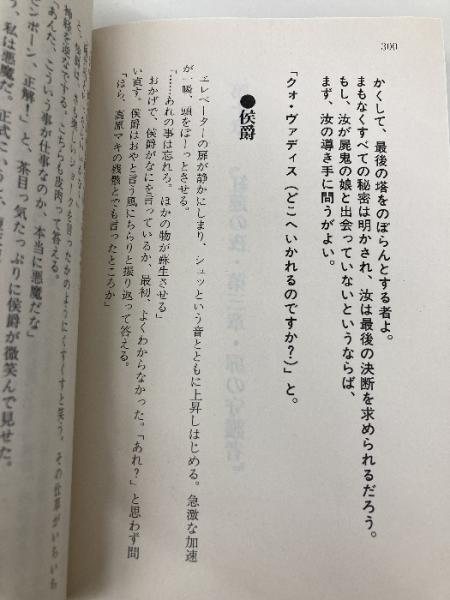 300
かくして、最後の塔をのぼらんとする者よ。
まもなくすべての秘密は明かされ、汝は最後の決断を求められるだろう。
もし、汝が屍鬼の娘と出会っていないというならば、
まず、汝の導き手に問うがよい。
「クォ・ヴァディス（どこへいかれるのですか？）」と。
●侯爵
エレベーターの扉が静かにしまり、シュッという音とともに上昇しはじめる。急激な加速
が一瞬、頭をぼーっとさせる。
「……あれの事は忘れろ。ほかの物が蘇生させる」
おかげで、侯爵がなにを言っているか、最初、よくわからなかった。「あれ？」と思わず問
い直す。侯爵はおやと言う風にちらりと振り返って答える。
「ほら、高原マキの残骸とでも言ったところか」
ジョークを回ったかのようにくすくすと笑う。その仕草がいちいち
神経を逆なでする。こちらも皮肉って答える。
「あんた、こういう事が仕事なのか、本当に悪魔だな」
ンポーン、正解！」と、茶目っ気たっぷりに侯爵が微笑んで見せた。
う、私は悪魔だ。正式にいうと、